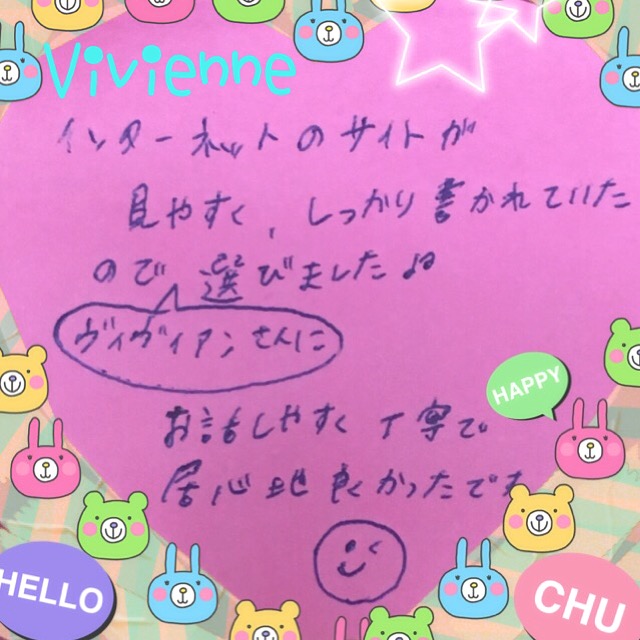 Vivienne
インターネットのサイトが
見やすく、しっかり書かれていた
ので選びました♪
ヴィヴィアンさんに
お話しやすく丁寧で
HAPPY
居心地良かったです
HELLO
CHU